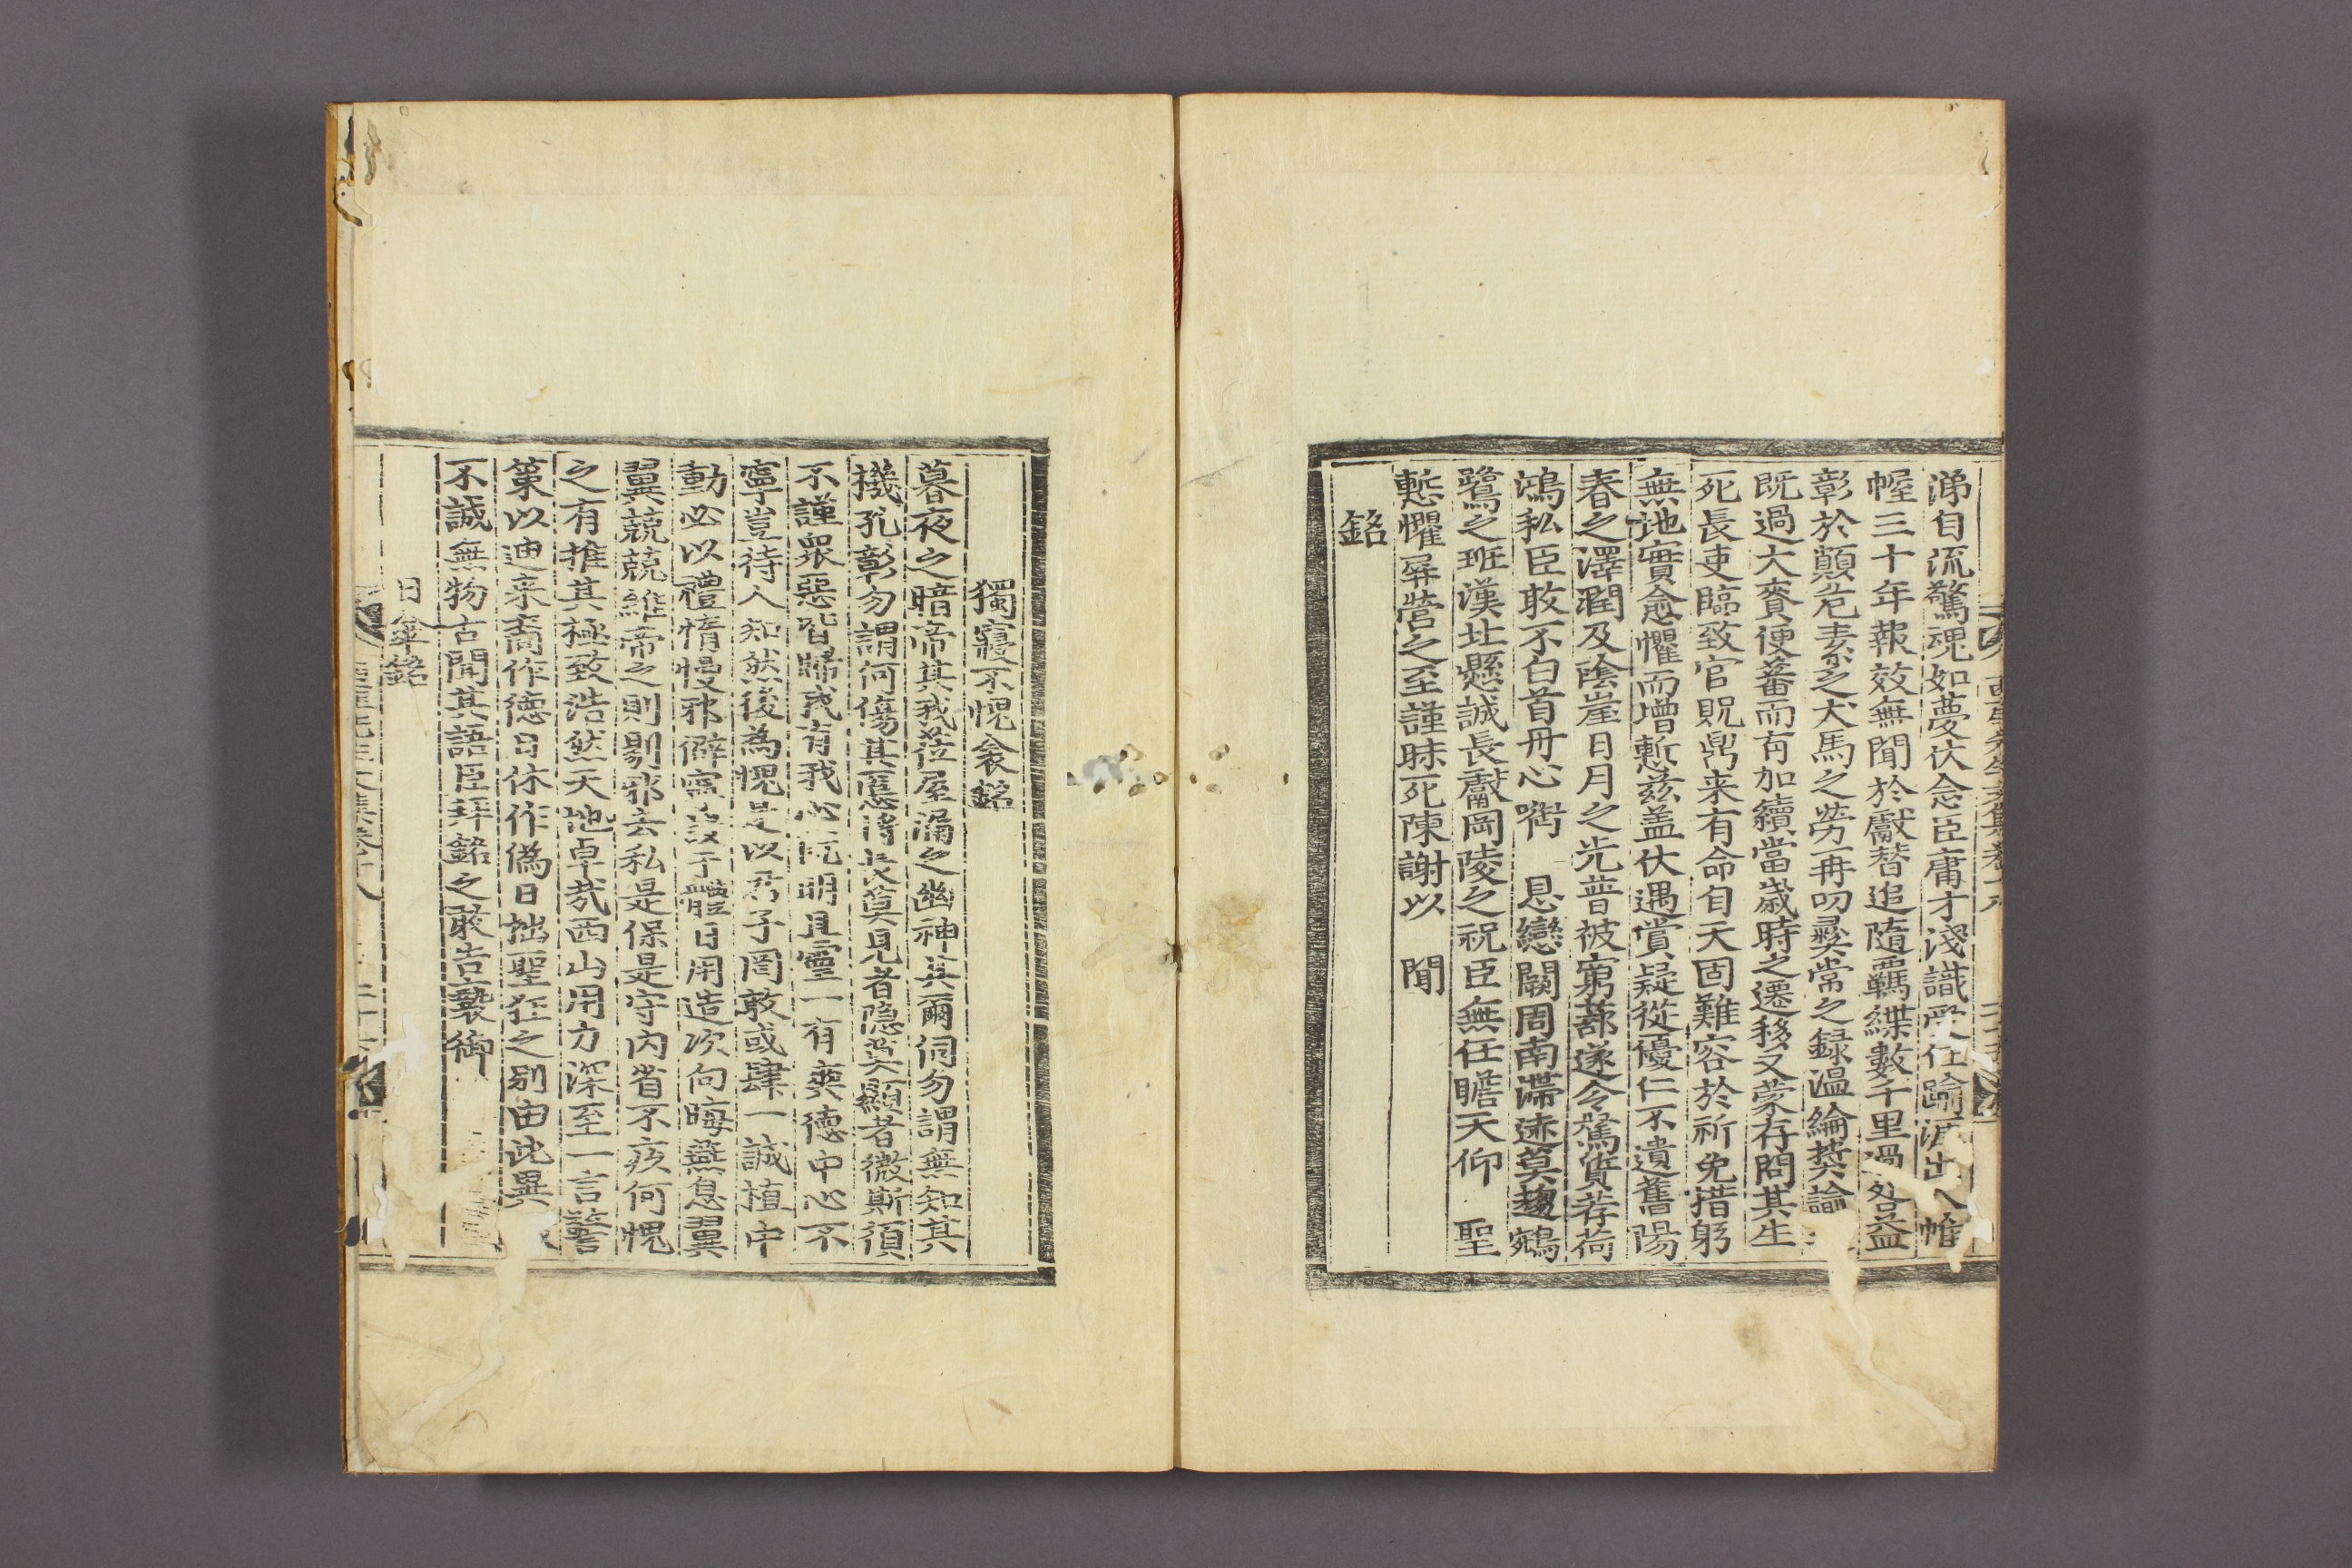 涕自流驚魂如夢伏念臣庸才淺識受任踰涯出入帷
幄三十年報效無聞於獻替追隨羈紲數千里過咎益
彰於顚危素乏犬馬之勞一冉叨彛常之錄溫綸奬諭
既過大賚便蕃而有加續當歲時之遷移又蒙存問其生
死長吏臨致官貺鼎來有命自天固難容於祈免措躬
無地實愈懼而增慙兹盖伏遇賞疑從優仁不遺舊陽
春之澤潤及陰崖日月之光普被窮蔀遂令駑質荐荷
鴻私臣敢不白首丹心啣 恩戀闕周南滯迹莫趨鵷
鷺之班漢北懸誠長獻岡陵之祝臣無任瞻天仰 聖
慙懼屛營之至謹昧死陳謝以 聞
銘
獨寢不愧衾銘
暮夜之暗帝其我莅屋漏之幽神其爾伺勿謂無知其
機孔彰勿謂何傷其慝將長莫見者隱莫顯者微斯須
不謹衆惡皆歸我有我心旣明且靈一有爽德中心不
寧豈待人知然後爲愧是以君子罔敢或肆一誠植中
動必以禮惰慢邪僻寧設于體日用造次向晦燕息翼
翼兢兢維帝之則剔邪去私是保是守內省不疚何愧
之有推其極致浩然天地卓哉西山用力深至一言警
策以迪來裔作德日休作僞日拙聖狂之別由此異
不誠無物古聞其語臣拜銘之敢告褻御
日傘銘